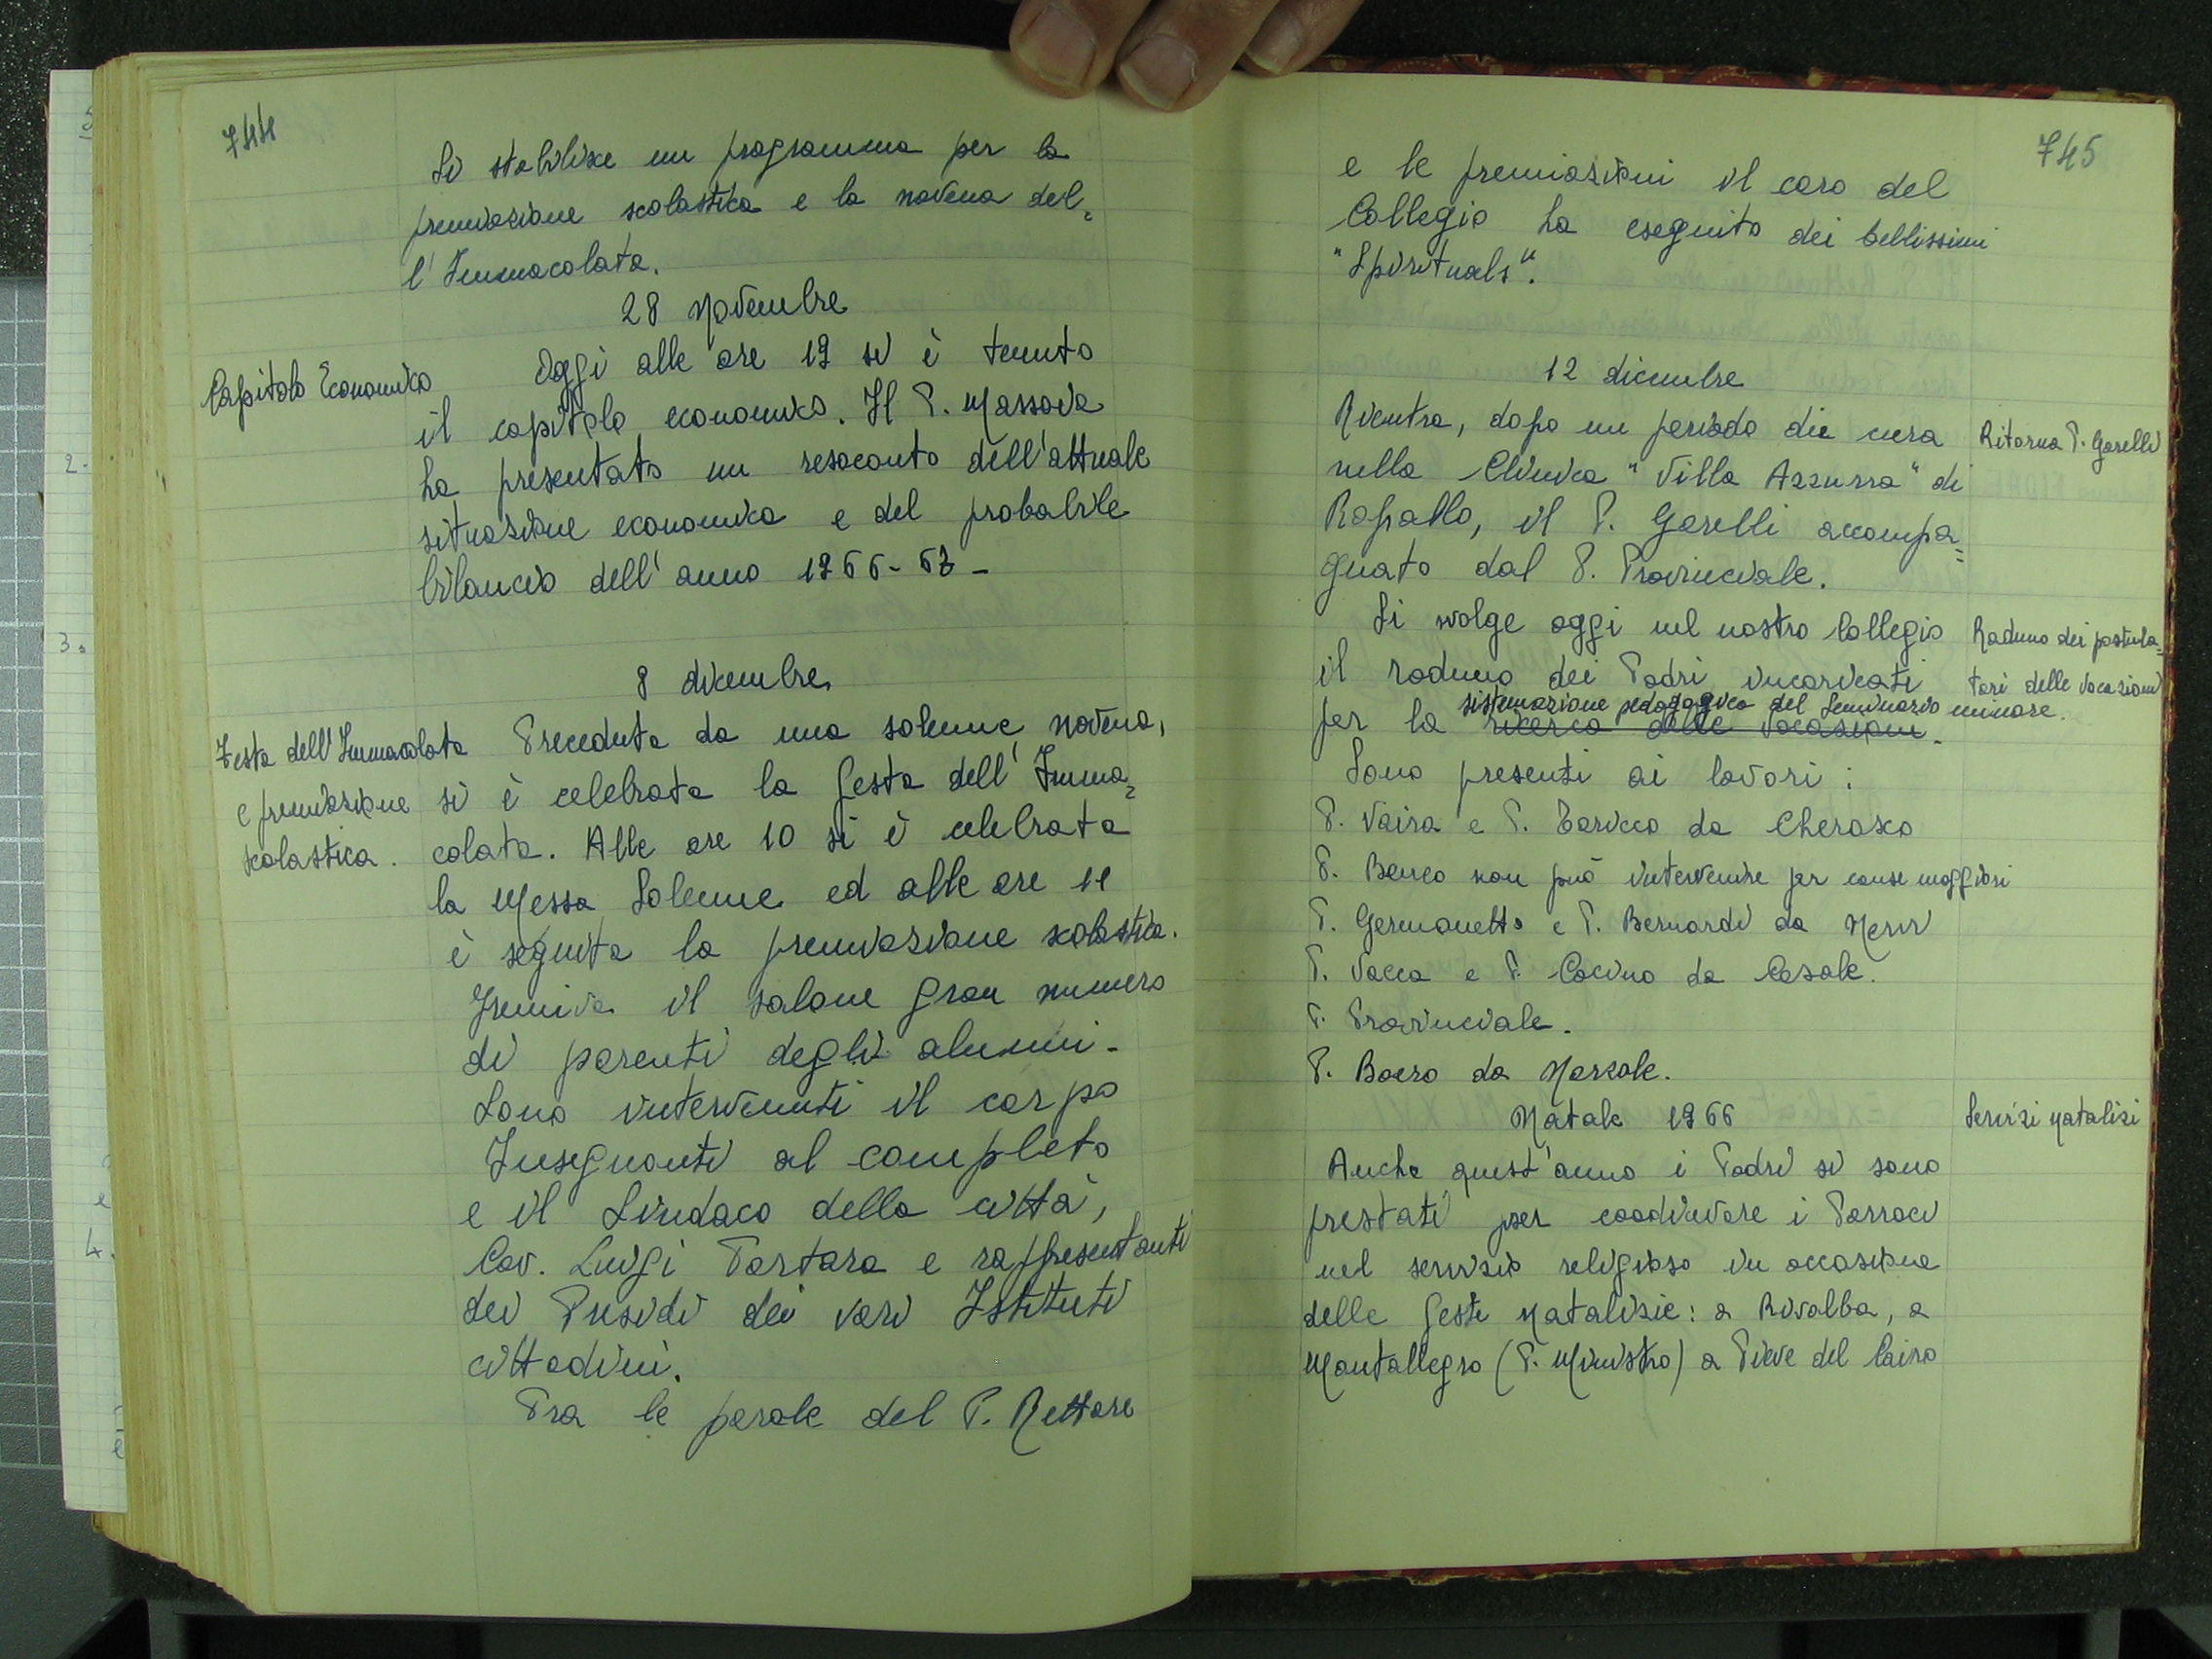 744
Si stabilisce un programma per la
premiazione scolastica e la novena del=
l'Immacolata.
28 Novembre
Capitolo Economico
Oggi alle ore 19 si è tenuto
il capitolo economico. Il P. Massaia
ha presentato un resoconto dell'attuale
situazione economica e del probabile
bilancio dell'anno 1966-67-
8 dicembre
Festa dell'Immacolata
e premiazione
scolastica.
Preceduta da una solenne novena,
si è celebrata la festa dell'Imma=
colata. Alle ore 10 si è celebrata
la Messa Solenne ed alle ore 11
è seguita la premiazione scolastica.
Gremiva il salone gran numero
di parenti degli alunni.
Sono intervenuti il corpo
Insegnanti al completo
e il Sindaco della città,
Cav. Luigi Tartara e rappresentanti
dei Presidi dei vari Istituti
cittadini.
Tra le parole del P. Rettore
745
e le premiazioni il coro del
Collegio ha eseguito dei bellissimi
"Spirituals".
12 dicembre
Ritorna P. Gorelli
Rientra, dopo un periodo di cura
nella Clinica "Villa Azzurra" di
Rapallo, il P. Gorelli accompa=
gnato dal P. Provinciale.
Raduno dei postula=
tori delle vocazioni
Si svolge oggi nel nostro Collegio
il raduno dei Padri incaricati
sistemazione pedagogica del Seminario minore.
per la ricerca delle vocazioni.
Sono presenti ai lavori:
P. Vaira e P. Taricco da Cherasco
P. Benco non può intervenire per cause maggiori
P. Germanetto e P. Bernardi da Nervi
P. Vacca e P. Cocino da Casale.
P. Provinciale.
P. Boero da Narzole.
Natale 1966
Servizi natalizi
Anche quest'anno i Padri si sono
prestati per coadiuvare i Parroci
nel servizio religioso in occasione
delle feste natalizie: a Rivalba, a
Montallegro (P. Ministro) a Pieve del Cairo